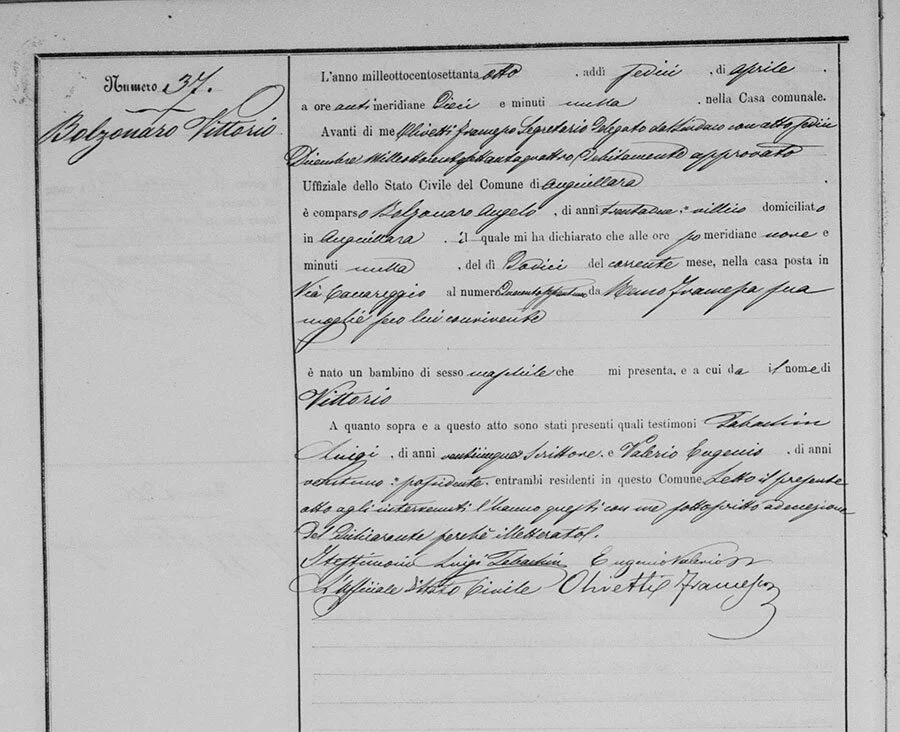 Numero 37.
Bolzonaro Vittorio
L'anno milleottocentosettanta otto, addì sedici, di aprile.
a ore anti meridiane Dieci e minuti nulla, nella Casa comunale.
Avanti di me Olivetti Francesco Segretario Delegato dal Sindaco con atto sedici
Dicembre Milleottocentosettantaquattro, Debitamente approvato
Uffiziale dello Stato Civile del Comune di Anguillara.
è comparso Bolzonaro Angelo, di anni trentadue villico domiciliato
in Anguillara. il quale mi ha dichiarato che alle ore po meridiane nove e
minuti nulla, del dì Dodici del corrente mese, nella casa posta in
Via Canareggio al numero da Francesca sua
moglie seco lui convivente
è nato un bambino di sesso maschile che mi presenta, e a cui da il nome di
Vittorio
A quanto sopra e a questo atto sono stati presenti quali testimoni Tabachin
Luigi, di anni venticinque Scrittore, e Valerio Eugenio, di anni
ventuno possidente, entrambi residenti in questo Comune. Letto il presente
atto agli intervenuti l'hanno questi con me sottoscritto ad eccezione
del Dichiarante perchè illetterato.
I testimoni Luigi Tabachin Eugenio Valerio
L'Uffiziale di Stato Civile Olivetti Francesco